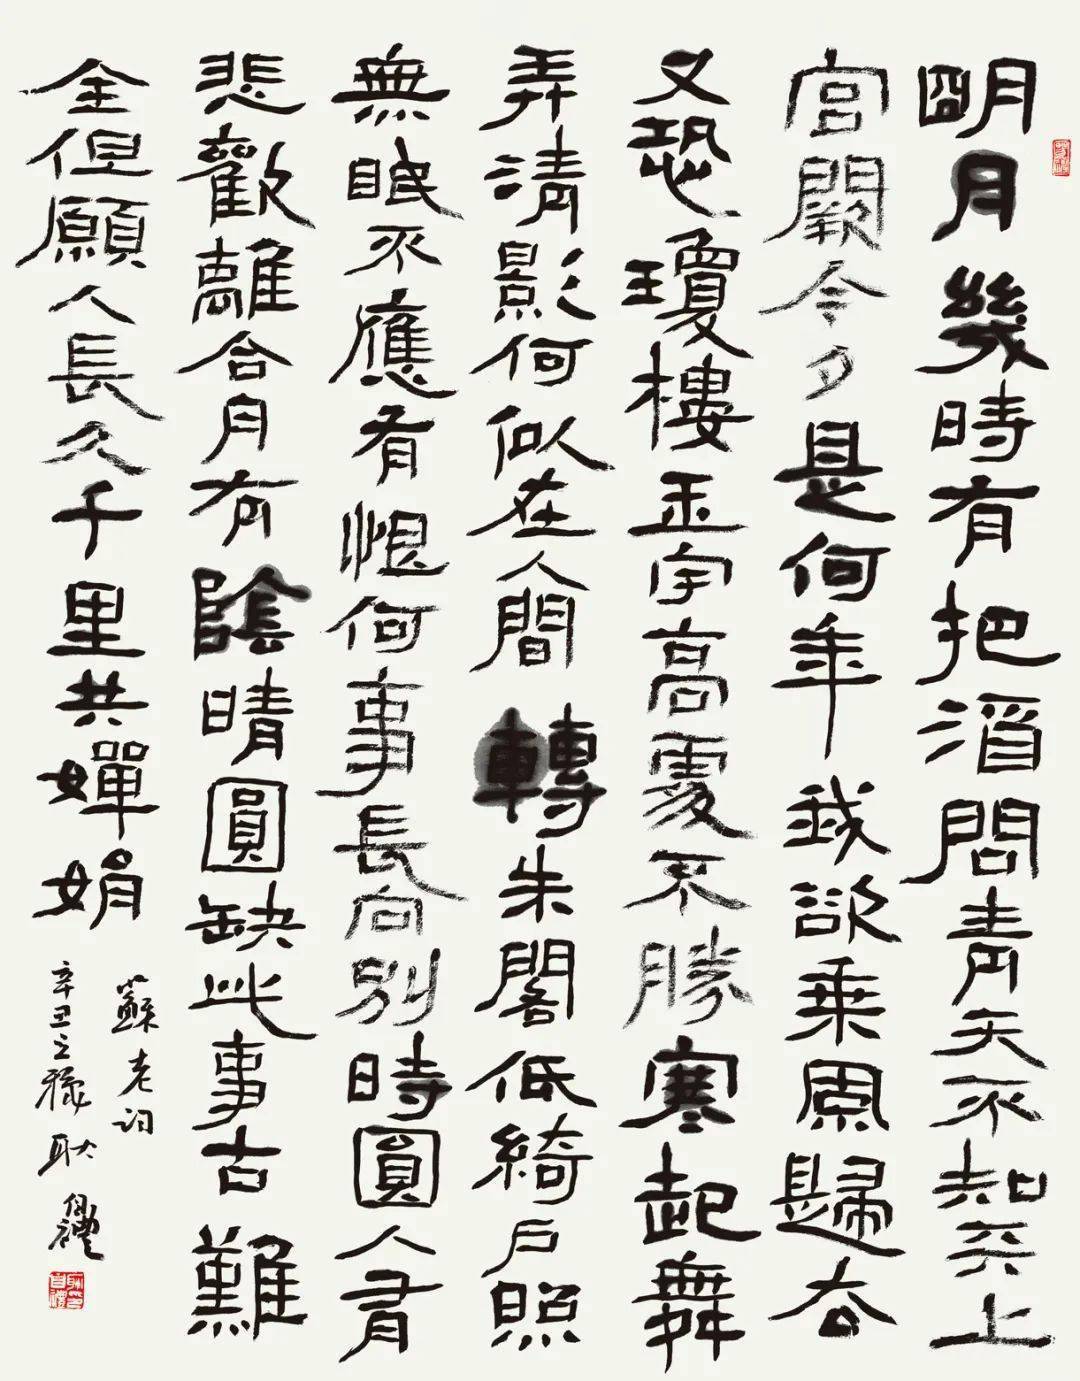 明月幾時有把酒問青天不知天上
宮闕今夕是何年我欲乘風歸去
又恐瓊樓玉宇高處不勝寒起舞
弄清影何似在人間轉朱閣低綺戶照
無眠不應有恨何事長向別時圓人有
悲歡離合月有陰晴圓缺此事古難
全但願人長久千里共嬋娟
蘇老詞
辛丑之秋耿